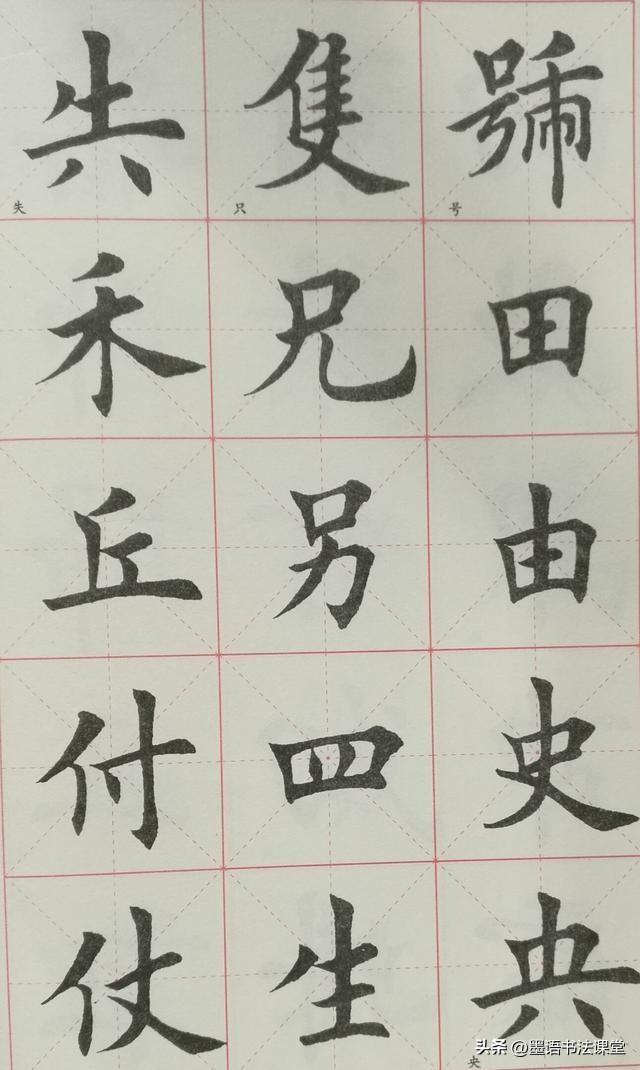 號田由史央
号
央
隻兄另四生
只
失禾丘付仗
失
头条 @墨语书法课堂